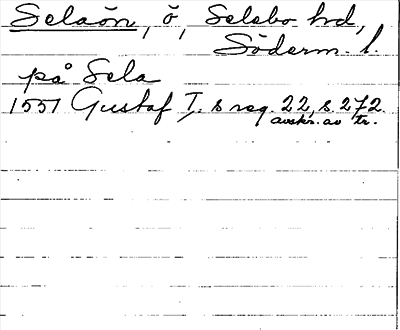 Selaön, ö, Selebo hrd,
Söderm. l.
på Sela
1551 Gustaf I:s reg. 22, s. 272.
avskr. av tr.